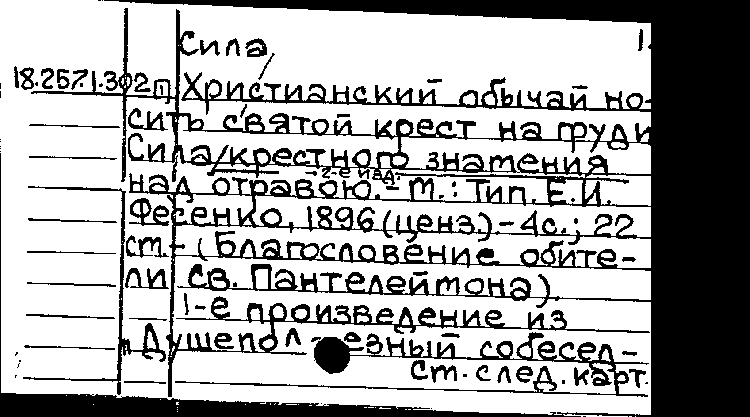 Сила, 1.
18.257.1.302 П Христианский обычай но-
сить святой крест на груди
Сила/крестного знамения
над отравою. - 2-е изд. - М.: Тип. Е.И.
Фесенко, 1896 (ценз.). - 4с.; 22
ст. - (Благословение обите-
ли св. Пантелеймона).
1-е произведение из
Душепол-езный собесед-
ст. след. карт.